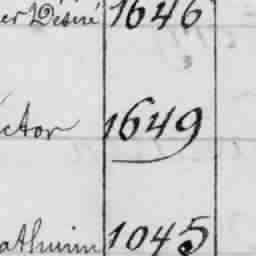 er Désiré 1646
ictor 1649
athurin 1045